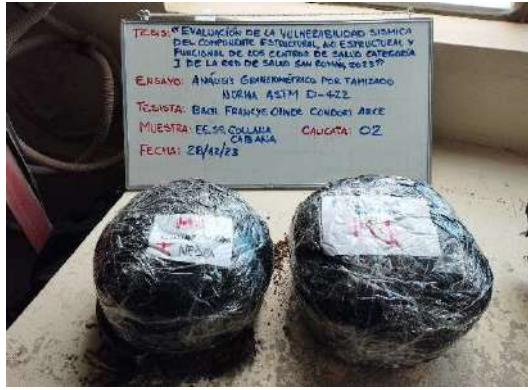 TESIS: "EVALUACIÓN DE LA VULNERABILIDAD SISMICA
DEL COMPONENTE ESTRUCTURAL, NO ESTRUCTURAL Y
FUNCIONAL DE LOS CENTROS DE SALUD CATEGORÍA
I DE LA RED DE SALUD SAN ROMÁN, 2023"
ENSAYO: ANÁLISIS GRANULOMÉTRICO POR TAMIZADO
NORMA ASTM D-422
TESISTA: BACH. CONDORI ARCE
MUESTRA: EE.SS. COLLANA CALICATA: 02
CABANA
FECHA: 28/12/23